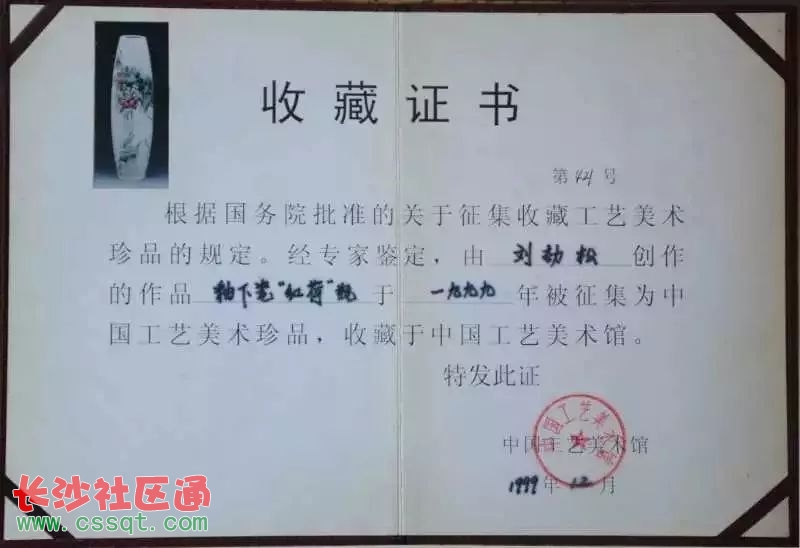 收藏证书
第424号
根据国务院批准的关于征集收藏工艺美术
珍品的规定。经专家鉴定，由 刘劲松 创作
的作品 釉下瓷“红荷”瓶 于 一九九九 年被征集为中
国工艺美术珍品，收藏于中国工艺美术馆。
特发此证
中国工艺美术馆
中国工艺美术馆
1999年12月
长沙社区通
www.cssqt.com